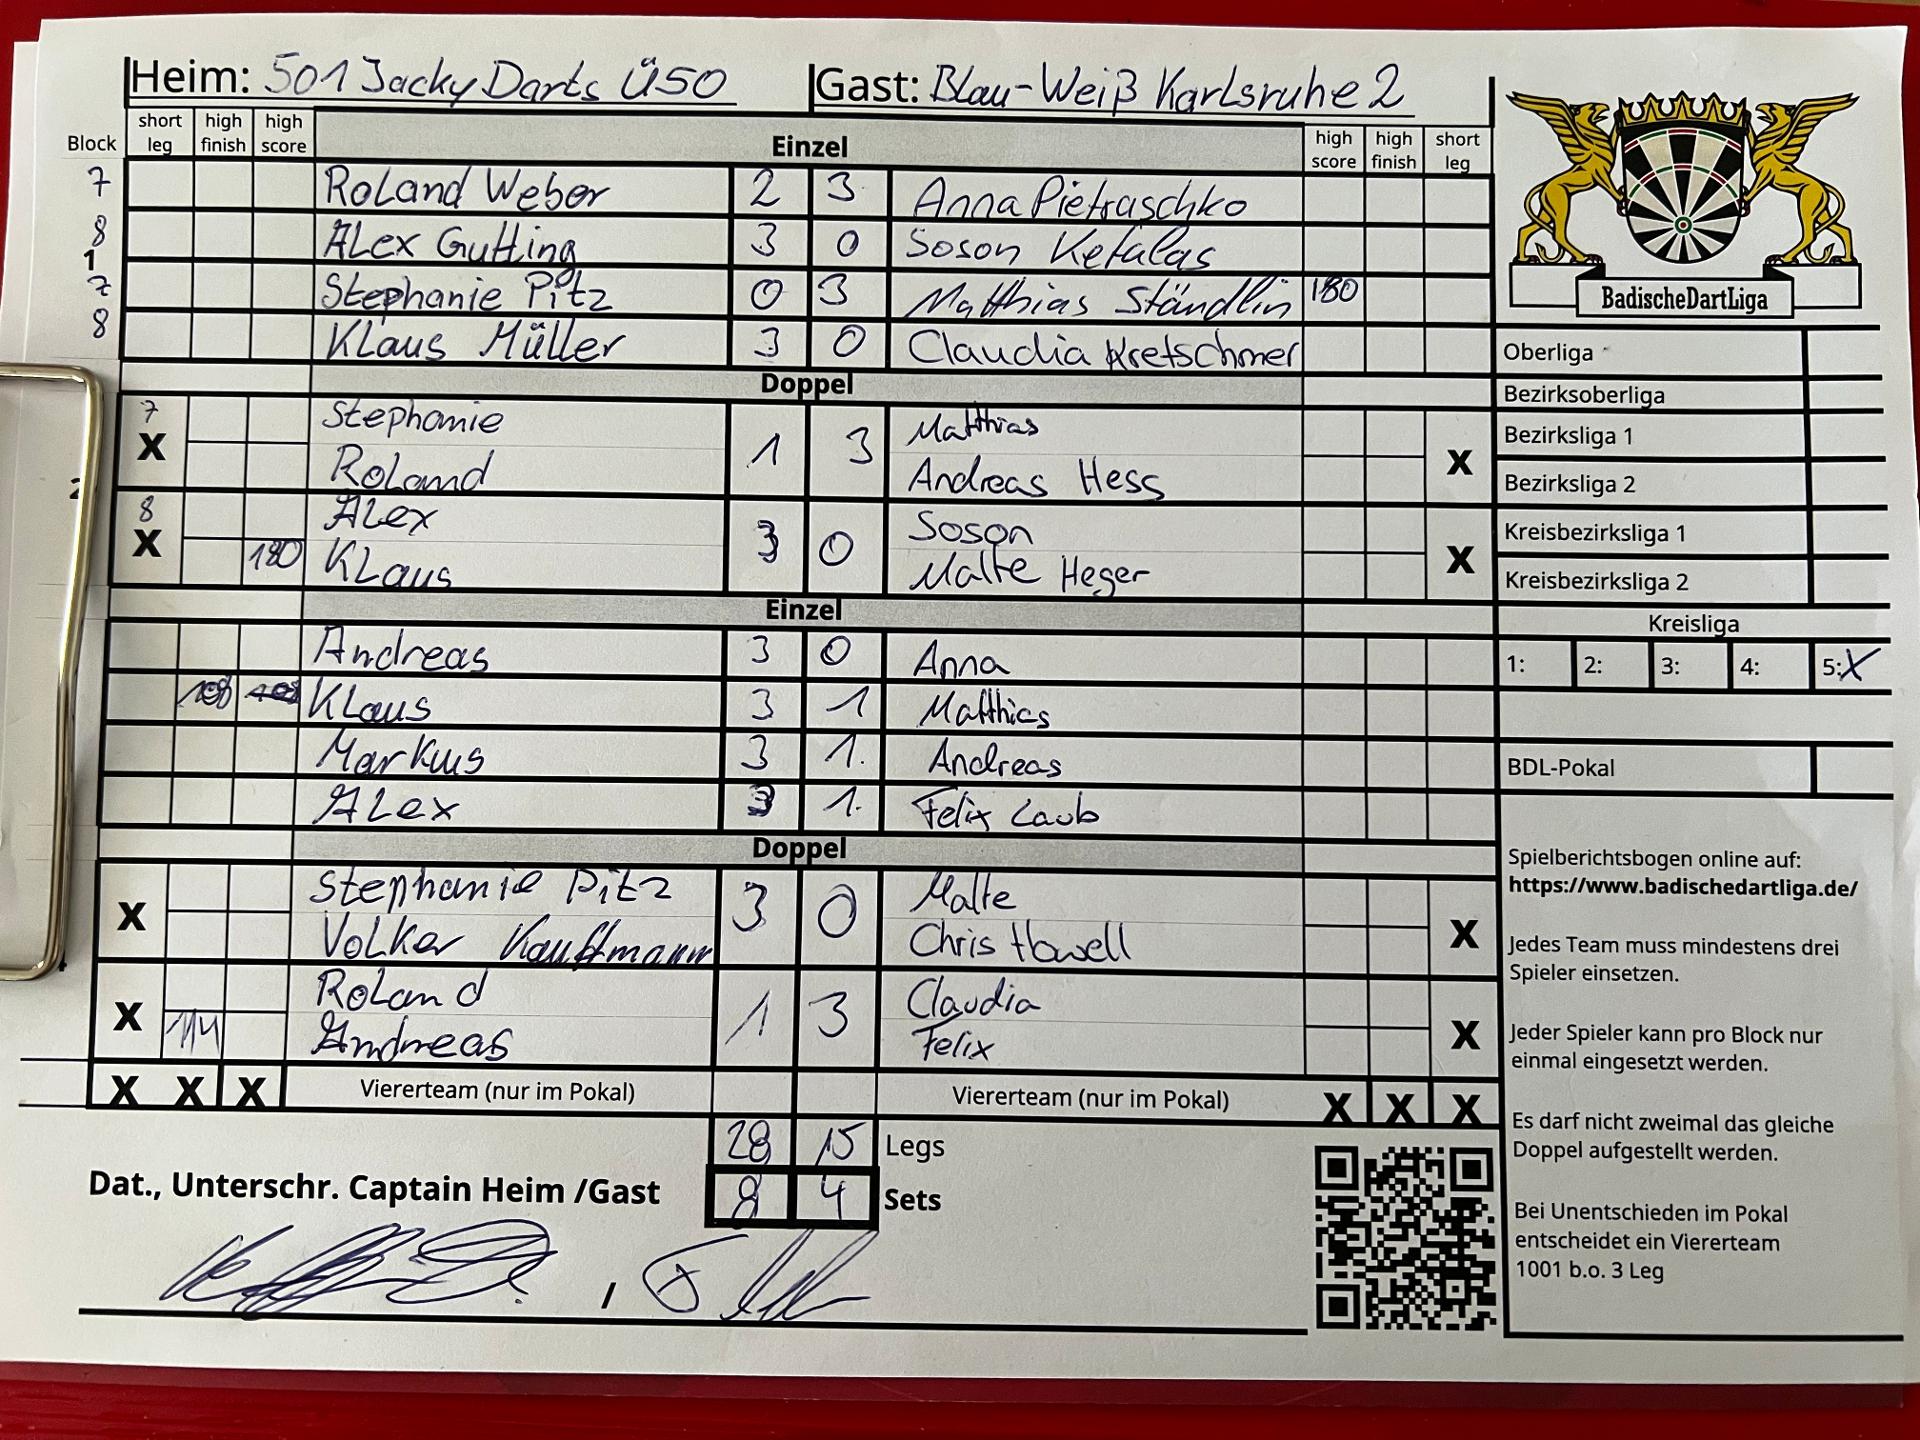 Heim: 501 Jacky Darts Ü50 Gast: Blau-Weiß Karlsruhe 2
Block short leg high finish high score Einzel high score high finish short leg
7 Roland Weber 2 3 Anna Pietraschko
8 Alex Gutting 3 0 Soson Kefalas
1
7 Stephanie Pitz 0 3 Matthias Ständlin 180
8 Klaus Müller 3 0 Claudia Kretschmer
Doppel
7 Stephanie Matthias
X 1 3 X
Roland Andreas Hess
2
8 Alex Soson
X 3 0 X
180 Klaus Malte Heger
Einzel
Andreas 3 0 Anna
108 Klaus 3 1 Matthias
Markus 3 1. Andreas
Alex 3 1. Felix Laub
Doppel
Stephanie Pitz Malte
X 3 0 X
Volker Kauffmann Chris Howell
Roland Claudia
X 1 3 X
114 Andreas Felix
X X X Viererteam (nur im Pokal) Viererteam (nur im Pokal) X X X
28 15 Legs
8 4 Sets
Dat., Unterschr. Captain Heim /Gast
/
BadischeDartLiga
Oberliga
Bezirksoberliga
Bezirksliga 1
Bezirksliga 2
Kreisbezirksliga 1
Kreisbezirksliga 2
Kreisliga
1: 2: 3: 4: 5: X
BDL-Pokal
Spielberichtsbogen online auf:
https://www.badischedartliga.de/
Jedes Team muss mindestens drei
Spieler einsetzen.
Jeder Spieler kann pro Block nur
einmal eingesetzt werden.
Es darf nicht zweimal das gleiche
Doppel aufgestellt werden.
Bei Unentschieden im Pokal
entscheidet ein Viererteam
1001 b.o. 3 Leg